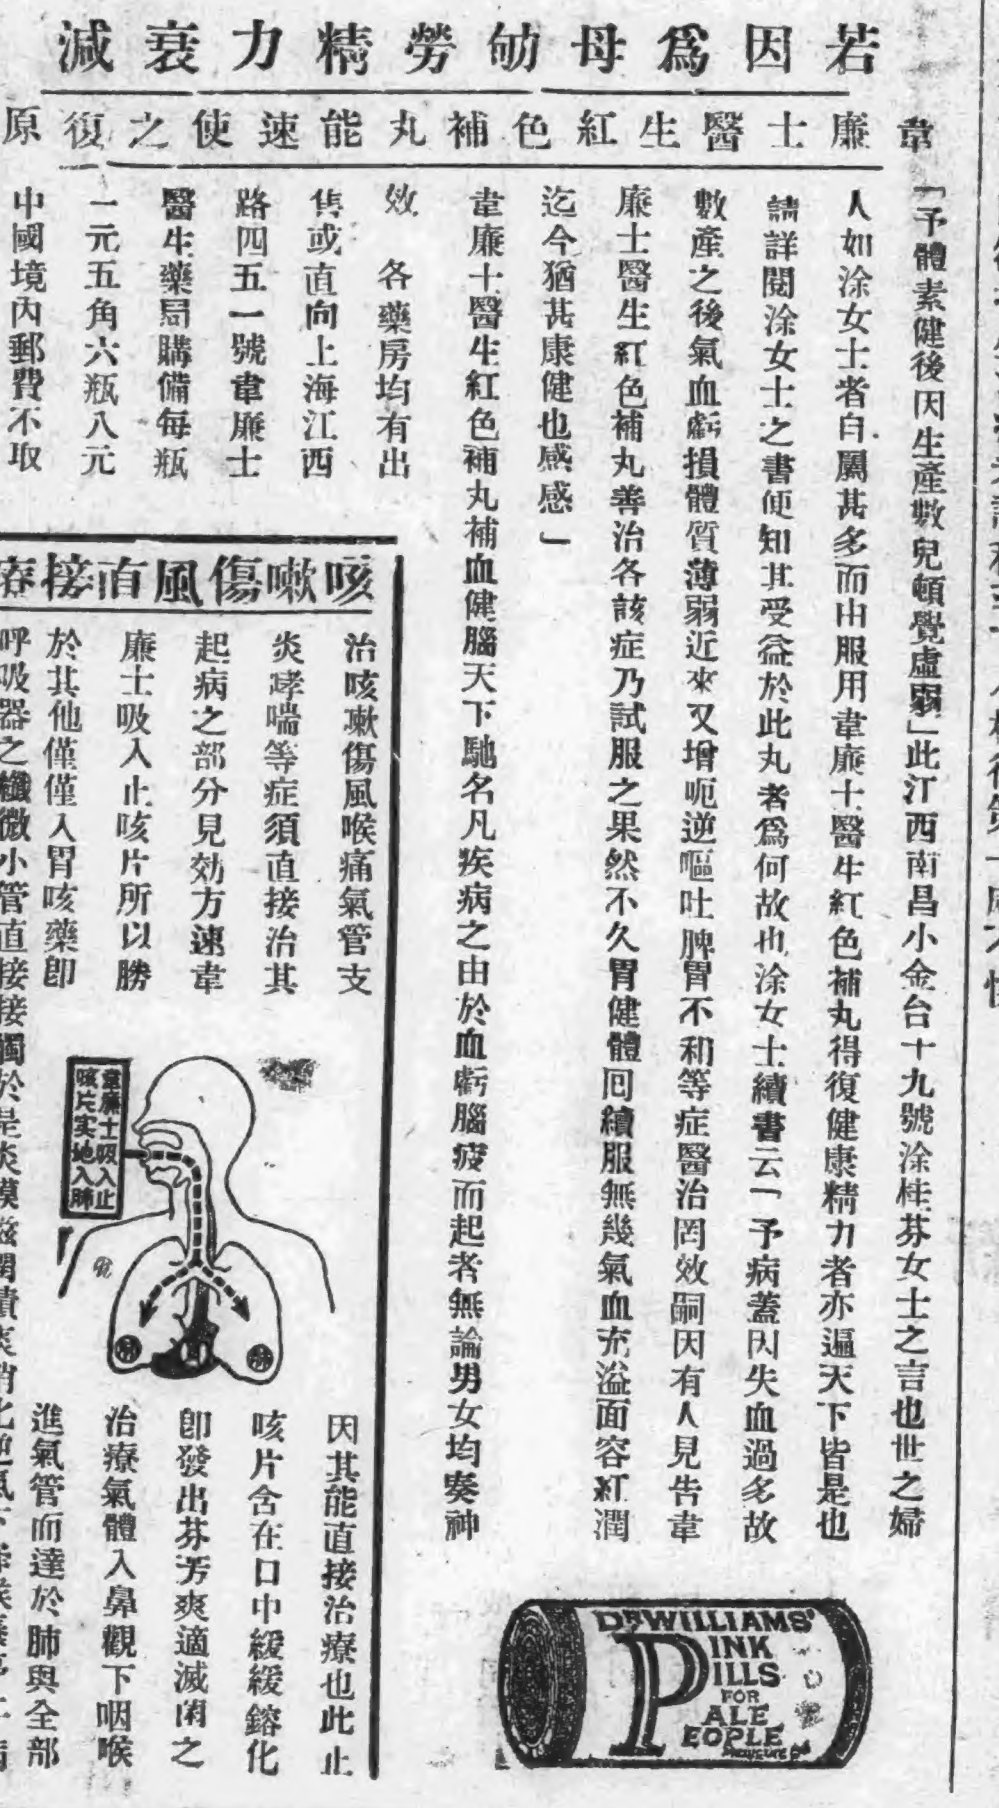 若因爲母劬勞精力衰減
韋廉士醫生紅色補丸能速使之復原
「予體素健後因生產數兒頓覺虛弱」此江西南昌小金台十九號涂桂芬女士之言也世之婦
人如涂女士者自屬甚多而由服用韋廉士醫生紅色補丸得復健康精力者亦遍天下皆是也
請詳閱涂女士之書便知其受益於此丸者爲何故也涂女士續書云「予病蓋因失血過多故
數產之後氣血虧損體質薄弱近來又增呃逆嘔吐脾胃不和等症醫治罔效嗣因有人見告韋
廉士醫生紅色補丸善治各該症乃試服之果然不久胃健體囘續服無幾氣血充溢面容紅潤
迄今猶甚康健也感感」
韋廉士醫生紅色補丸補血健腦天下馳名凡疾病之由於血虧腦疲而起者無論男女均奏神
效 各藥房均有出
售或直向上海江西
路四五一號韋廉士
醫生藥局購備每瓶
一元五角六瓶八元
中國境內郵費不取
DR WILLIAMS'
PINK
PILLS
FOR
PALE
PEOPLE
咳嗽傷風直接療
治咳嗽傷風喉痛氣管支
炎哮喘等症須直接治其
起病之部分見効方速韋
廉士吸入止咳片所以勝
於其他僅僅入胃咳藥卽
因其能直接治療也此止
咳片含在口中緩緩鎔化
卽發出芬芳爽適滅菌之
治療氣體入鼻觀下咽喉
進氣管而達於肺與全部
呼吸器之纖微小管直接接觸於是炎膜滋潤積痰消化
韋廉士吸入止
咳片实地入肺
肺
肺